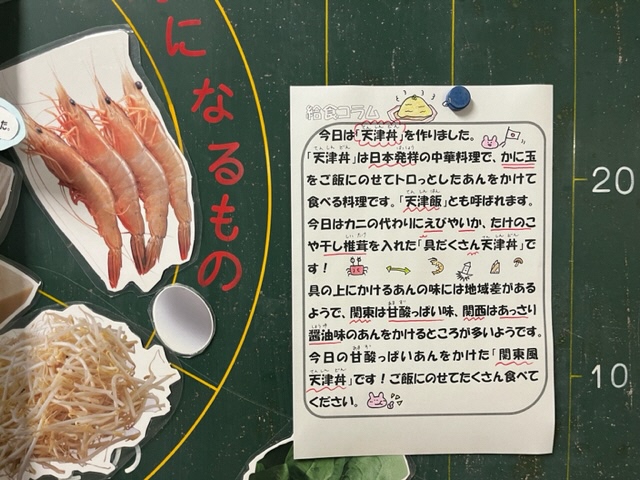 になるもの
た!
給食コラム
今日は「天津丼」を作りました。
「天津丼」は日本発祥の中華料理で、かに玉
をご飯にのせてトロっとしたあんをかけて
食べる料理です。「天津飯」とも呼ばれます。
今日はカニの代わりにえびやいか、たけのこ
や干し椎茸を入れた「具だくさん天津丼」で
す!
具の上にかけるあんの味には地域差がある
ようで、関東は甘酸っぱい味、関西はあっさり
醤油味のあんをかけるところが多いようです。
今日の甘酸っぱいあんをかけた「関東風
天津丼」です!ご飯にのせてたくさん食べて
ください。
20
10